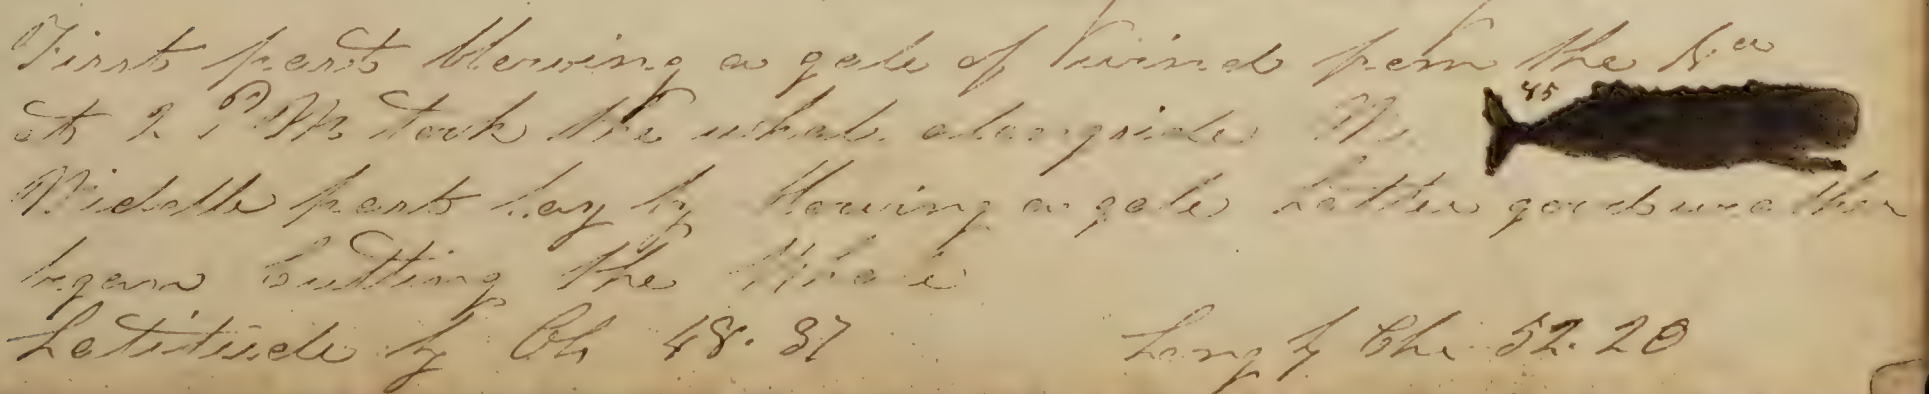 First part blowing a gale of wind from the
at 2 PM took the whale alongside
85
Middle part lay by blowing a gale Latter good weather
began Cutting the Whale
Latitude by Ob 48.37 Long by Chr 52.20